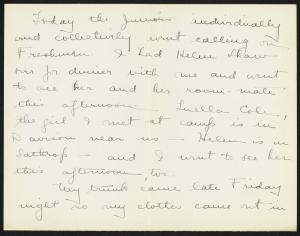 Today the Juniors individually
and collectively went calling on
Freshmen. I had Helen Shaw
for dinner with me and went
to see her and her room-mate
this afternoon - Luella Cole,
the girl I met at camp is in
Davison near us - Helen is in
Lathrop - and I went to see her
this afternoon, too.
My trunk came late Friday
night so my clothes came out in